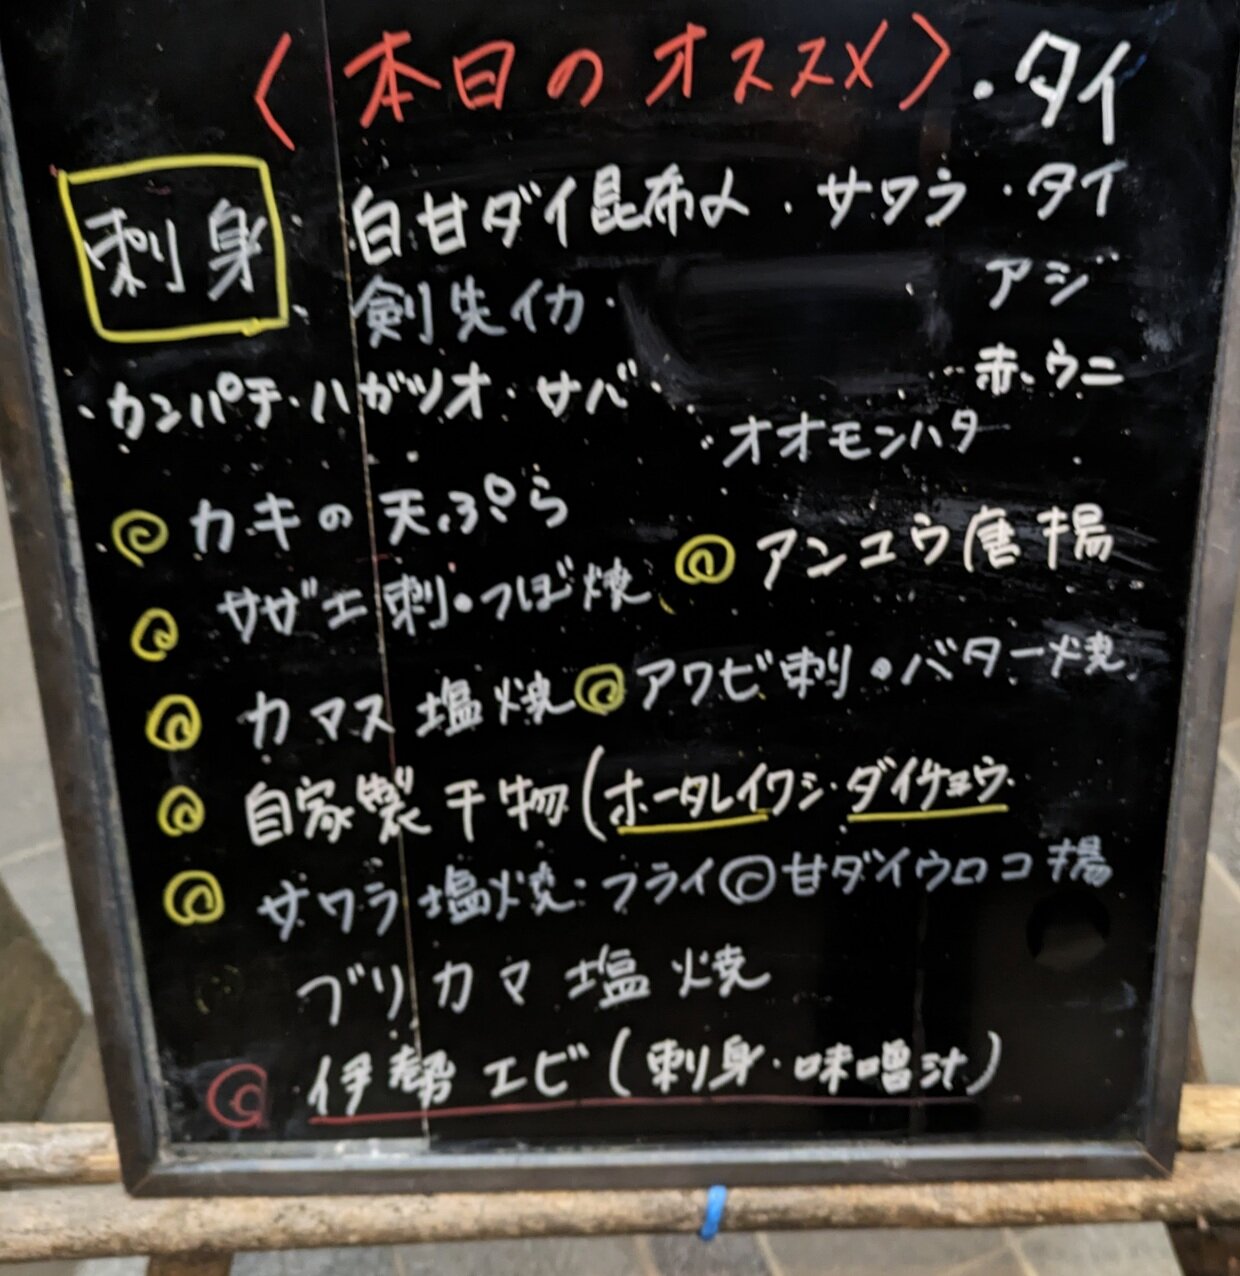 〈本日のオススメ〉・タイ
刺身 白甘ダイ昆布〆・サワラ・タイ
剣先イカ・ アジ
・カンパチ・ハガツオ・サバ・ 赤ウニ
・オオモンハタ
カキの天ぷら
アンコウ唐揚
サザエ刺・つぼ焼
カマス塩焼 アワビ刺・バター焼
自家製干物(ホータレイワシ・ダイチョウ
サワラ塩焼・フライ 甘ダイウロコ揚
ブリカマ塩焼
伊勢エビ(刺身・味噌汁)